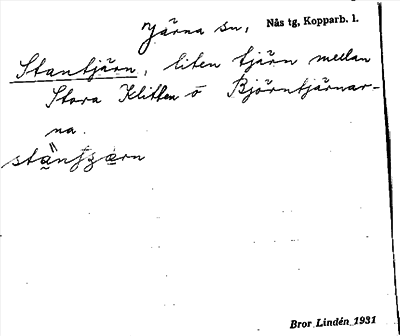 Järna sn, Nås tg, Kopparb. l.
Stantjärn, liten tjärn mellan
Stora Klitten o Björntjärnar-
na.
Bror Lindén 1931